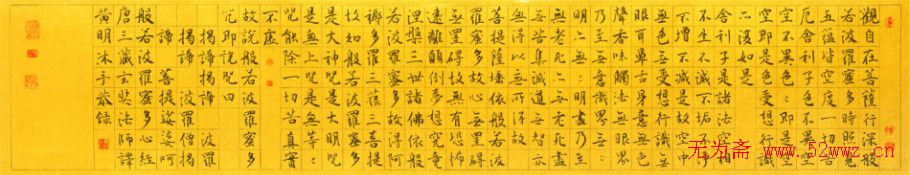 觀自在菩薩行深般
若波羅蜜多時照見
五蘊皆空度一切苦
厄舍利子色不異空
空不異色〻即是空
空即是色受想行識
亦復如是
舍利子是諸法空相
不生不滅不垢不淨
不增不減是故空中
無色無受想行識無
眼耳鼻舌身意無色
聲香味觸法無眼界
乃至無意識界無〻
明亦無〻明盡乃至
無老死亦無老死盡
無苦集滅道無智亦
無得以無所得故
菩提薩埵依般若波
羅蜜多故心無罣礙
無罣礙故無有恐怖
遠離顛倒夢想究竟
涅槃三世諸佛依般
若波羅蜜多故得阿
耨多羅三藐三菩提
故知般若波羅蜜多
是大神咒是大明咒
是無上咒是無等〻
咒能除一切苦真實
不虛
故說般若波羅蜜多
咒即說咒曰
揭諦揭諦 波羅
揭諦 波羅僧揭
諦 菩提薩婆訶
般若波羅蜜多心經
唐三藏玄奘法師譯
黃明沐手敬錄
无为斋 www.52wwz.cn